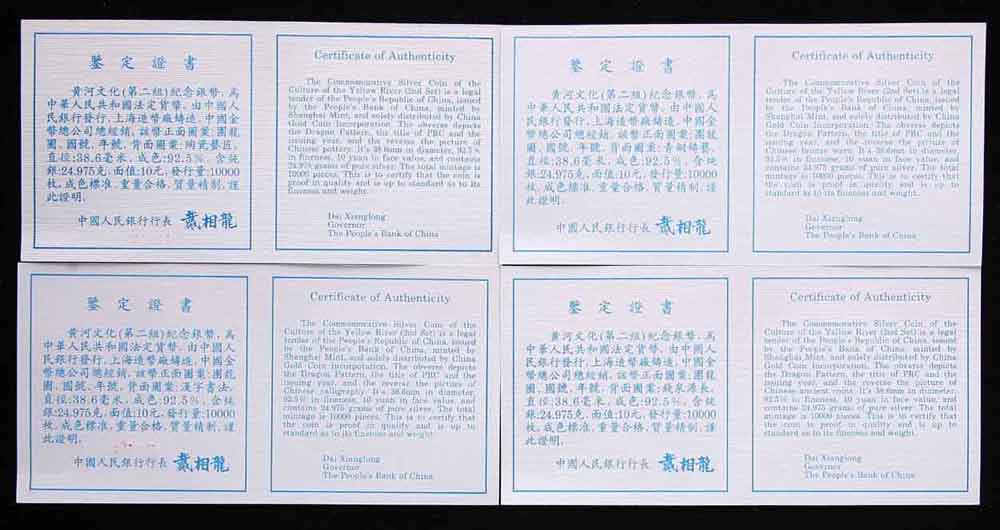 鑒定證書
黃河文化(第二組)紀念銀幣,爲
中華人民共和國法定貨幣,由中國人
民銀行發行,上海造幣廠鑄造,中國金
幣總公司總經銷,該幣正面圖案:團龍
圖、國號、年號,背面圖案:陶瓷藝匠,
直徑:38.6毫米,成色:92.5%,含純
銀:24.975克,面值:10元,發行量:10000
枚,成色標準,重量合格,質量精制,謹
此證明。
中國人民銀行行長 戴相龍
Certificate of Authenticity
The Commemorative Silver Coin of the
Culture of the Yellow River (2nd Set) is a legal
tender of the People's Republic of China, issued
by the People's Bank of China, minted by
Shanghai Mint, and solely distributed by China
Gold Coin Incorporation. The obverse depicts
the Dragon Pattern, the title of PRC and the
issuing year, and the reverse the picture of
Chinese pottery. It's 38.6mm in diameter, 92.5%
in fineness, 10 yuan in face value, and contains
24.975 grams of pure silver. The total mintage is
10000 pieces. This is to certify that the coin is
proof in quality and is up to standard as to its
fineness and weight.
Dai Xianglong
Governor
The People's Bank of China
鑒定證書
黃河文化(第二組)紀念銀幣,爲
中華人民共和國法定貨幣,由中國人
民銀行發行,上海造幣廠鑄造,中國金
幣總公司總經銷,該幣正面圖案:團龍
圖、國號、年號,背面圖案:青銅鑄藝,
直徑:38.6毫米,成色:92.5%,含純
銀:24.975克,面值:10元,發行量:10000
枚,成色標準,重量合格,質量精制,謹
此證明。
中國人民銀行行長 戴相龍
Certificate of Authenticity
The Commemorative Silver Coin of the
Culture of the Yellow River (2nd Set) is a legal
tender of the People's Republic of China, issued
by the People's Bank of China, minted by
Shanghai Mint, and solely distributed by China
Gold Coin Incorporation. The obverse depicts
the Dragon Pattern, the title of PRC and the
issuing year, and the reverse the picture of
Chinese bronze ware. It's 38.6mm in diameter,
92.5% in fineness, 10 yuan in face value, and
contains 24.975 grams of pure silver. The total
mintage is 10000 pieces. This is to certify that
the coin is proof in quality and is up to
standard as to its fineness and weight.
Dai Xianglong
Governor
The People's Bank of China
鑒定證書
黃河文化(第二組)紀念銀幣,爲
中華人民共和國法定貨幣,由中國人
民銀行發行,上海造幣廠鑄造,中國金
幣總公司總經銷,該幣正面圖案:團龍
圖、國號、年號,背面圖案:漢字書法,
直徑:38.6毫米,成色:92.5%,含純
銀:24.975克,面值:10元,發行量:10000
枚,成色標準,重量合格,質量精制,謹
此證明。
中國人民銀行行長 戴相龍
Certificate of Authenticity
The Commemorative Silver Coin of the
Culture of the Yellow River (2nd Set) is a legal
tender of the People's Republic of China, issued
by the People's Bank of China, minted by
Shanghai Mint, and solely distributed by China
Gold Coin Incorporation. The obverse depicts
the Dragon Pattern, the title of PRC and the
issuing year, and the reverse the picture of
Chinese calligraphy. It's 38.6mm in diameter,
92.5% in fineness, 10 yuan in face value, and
contains 24.975 grams of pure silver. The total
mintage is 10000 pieces. This is to certify that
the coin is proof in quality and is up to
standard as to its fineness and weight.
Dai Xianglong
Governor
The People's Bank of China
鑒定證書
黃河文化(第二組)紀念銀幣,爲
中華人民共和國法定貨幣,由中國人
民銀行發行,上海造幣廠鑄造,中國金
幣總公司總經銷,該幣正面圖案:團龍
圖、國號、年號,背面圖案:錢泉源長,
直徑:38.6毫米,成色:92.5%,含純
銀:24.975克,面值:10元,發行量:10000
枚,成色標準,重量合格,質量精制,謹
此證明。
中國人民銀行行長 戴相龍
Certificate of Authenticity
The Commemorative Silver Coin of the
Culture of the Yellow River (2nd Set) is a legal
tender of the People's Republic of China, issued
by the People's Bank of China, minted by
Shanghai Mint, and solely distributed by China
Gold Coin Incorporation. The obverse depicts
the Dragon Pattern, the title of PRC and the
issuing year, and the reverse the picture of
Chinese ancient coin. It's 38.6mm in diameter,
92.5% in fineness, 10 yuan in face value, and
contains 24.975 grams of pure silver. The total
mintage is 10000 pieces. This is to certify that
the coin is proof in quality and is up to
standard as to its fineness and weight.
Dai Xianglong
Governor
The People's Bank of China